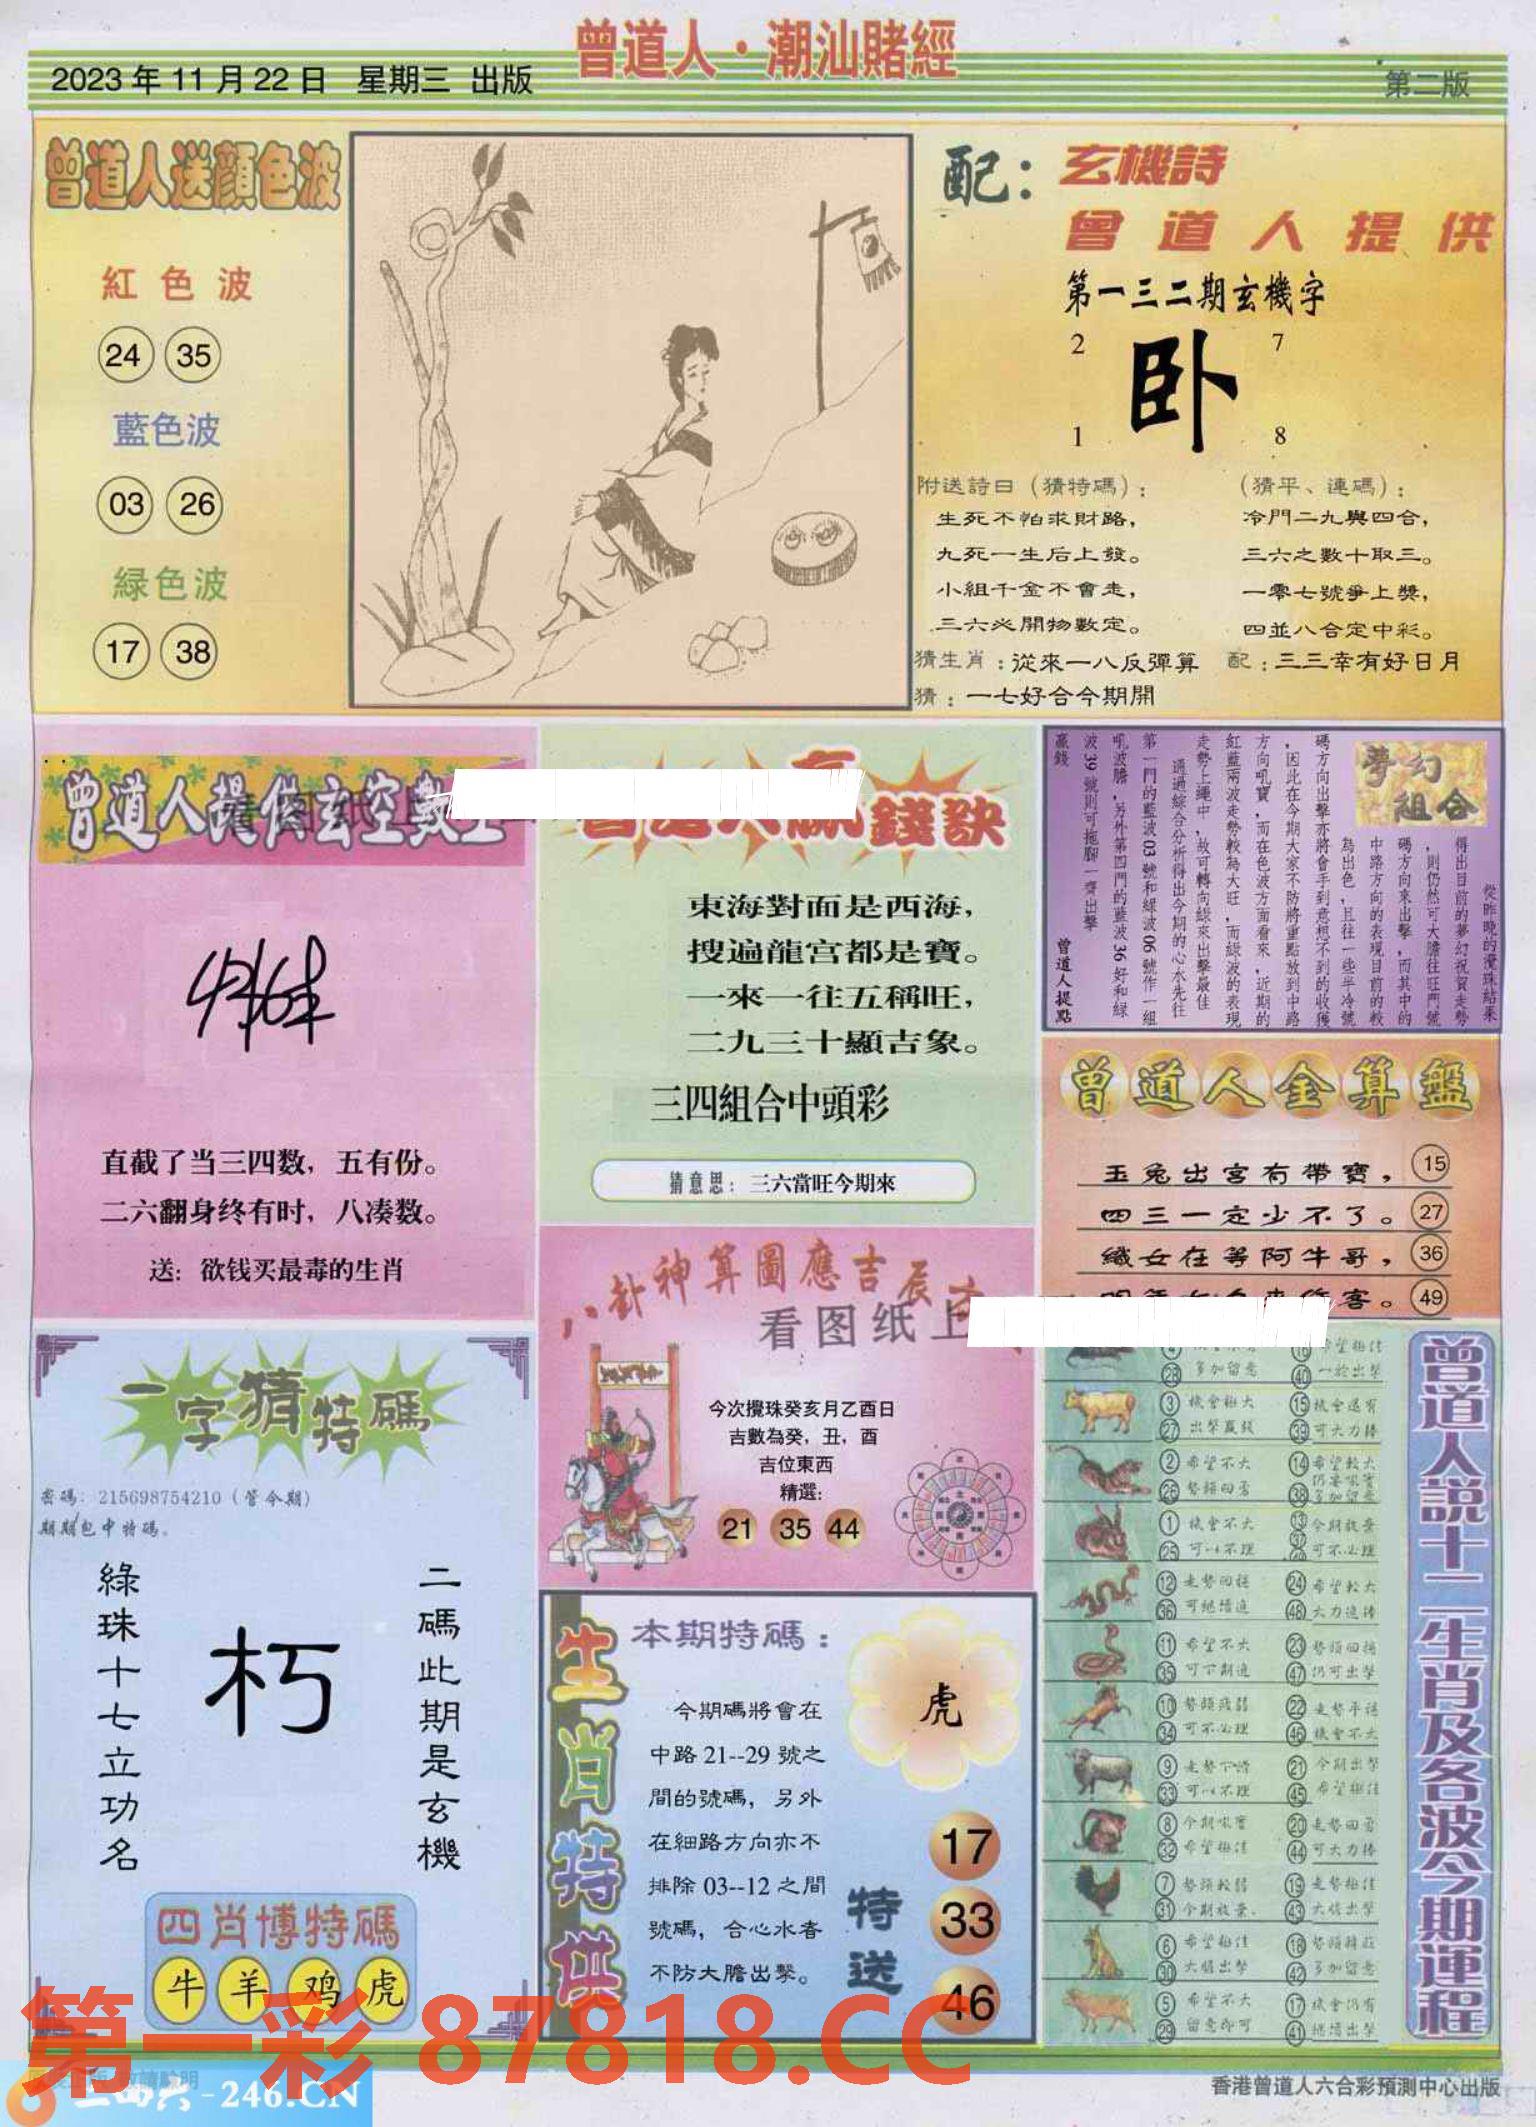 曾道人·潮汕賭經
2023年11月22日 星期三 出版
第二版
曾道人送顔色波
紅色波
24 35
藍色波
03 26
緑色波
17 38
配：玄機詩
曾道人提供
第一三二期玄機字
2 7
卧
1 8
附送詩曰（猜特碼）：
生死不怕求財路，
九死一生后上發。
小組千金不會走，
三六必開物數定。
（猜平、連碼）：
冷門二九與四合，
三六之數十取三。
一零七號爭上獎，
四並八合定中彩。
猜生肖：從來一八反彈算 配：三三幸有好日月
猜：一七好合今期開
曾道人提供玄空數
直截了当三四数，五有份。
二六翻身终有时，八凑数。
送：欲钱买最毒的生肖
錢訣
東海對面是西海，
搜遍龍宫都是寶。
一來一往五稱旺，
二九三十顯吉象。
三四組合中頭彩
猜意思：三六當旺今期來
夢幻
組合
從昨晚的攪珠結果
得出目前的夢幻祝賀走勢
，則仍然可大膽往旺門號
碼方向來出擊，而其中的
中路方向的表現目前的較
為出色，且往一些半冷號
碼方向出擊亦將會手到意想不到的收獲
，因此在今期大家不防將重點放到中路
方向吼寶，而在色波方面看來，近期的
紅藍兩波走勢較為大旺，而緑波的表現
走勢上運中，故可轉向綠來出擊最佳
通過綜合分析得出今期的心水先往
第一門的藍波03號和緑波06號作一組
吼波膽，另外第四門的藍波36好和緑
波39號則可拖腳一齊出擊
贏錢
曾道人提點
曾道人金算盤
玉兔出宮有帶寶， 15
四三一定少不了。 27
織女在等阿牛哥， 36
客。 49
八卦神算圖應吉辰
看图纸上
今次攪珠癸亥月乙酉日
吉數為癸，丑，酉
吉位東西
精選：
21 35 44
一字猜特碼
密碼：215698754210（管令期）
期期包中特碼。
二碼此期是玄機
朽
綠珠十七立功名
四肖博特碼
牛 羊 鸡 虎
生肖特供
本期特碼：
虎
今期碼將會在
中路21--29號之
間的號碼，另外
在細路方向亦不
排除03--12之間
號碼，合心水者
不防大膽出擊。
特送
17
33
46
曾道人説十二生肖及各波今期運程
④ ⑯ 希望極佳
㉘ 多加留意 ㊵ 一於出擊
③ 機會極大 ⑮ 機會還有
㉗ 出擊贏錢 ㊴ 可大力捧
② 希望不大 ⑭ 希望較大
㉖ 勢頭回勇 ㊳ 多加留意
① 機會不大 ⑬ 今期放棄
㉕ 可以不理 ㊲ 可不必理
⑫ 走勢回穩 ㉔ 希望較大
㊱ 可繼續追 ㊽ 大力追捧
⑪ 希望不大 ㉓ 勢頭回穩
㉟ 可下期追 ㊼ 仍可出擊
⑩ 勢頭疲弱 ㉒ 走勢平穩
㉞ 可不必理 ㊻ 機會不大
⑨ 走勢下滑 ㉑ 今期出擊
㉝ 可以不理 ㊺ 希望極佳
⑧ 今期吼寶 ⑳ 走勢回勇
㉜ 希望極佳 ㊹ 可大力捧
⑦ 勢頭較弱 ⑲ 走勢極佳
㉛ 今期放棄 ㊸ 大膽出擊
⑥ 希望極佳 ⑱ 勢頭
㉚ 大膽出擊 ㊷ 多加留意
⑤ 希望不大 ⑰ 機會仍有
㉙ 留意即可 ㊶ 繼續出擊
第一彩 87818.CC
二四六-246.CN
香港曾道人六合彩預測中心出版